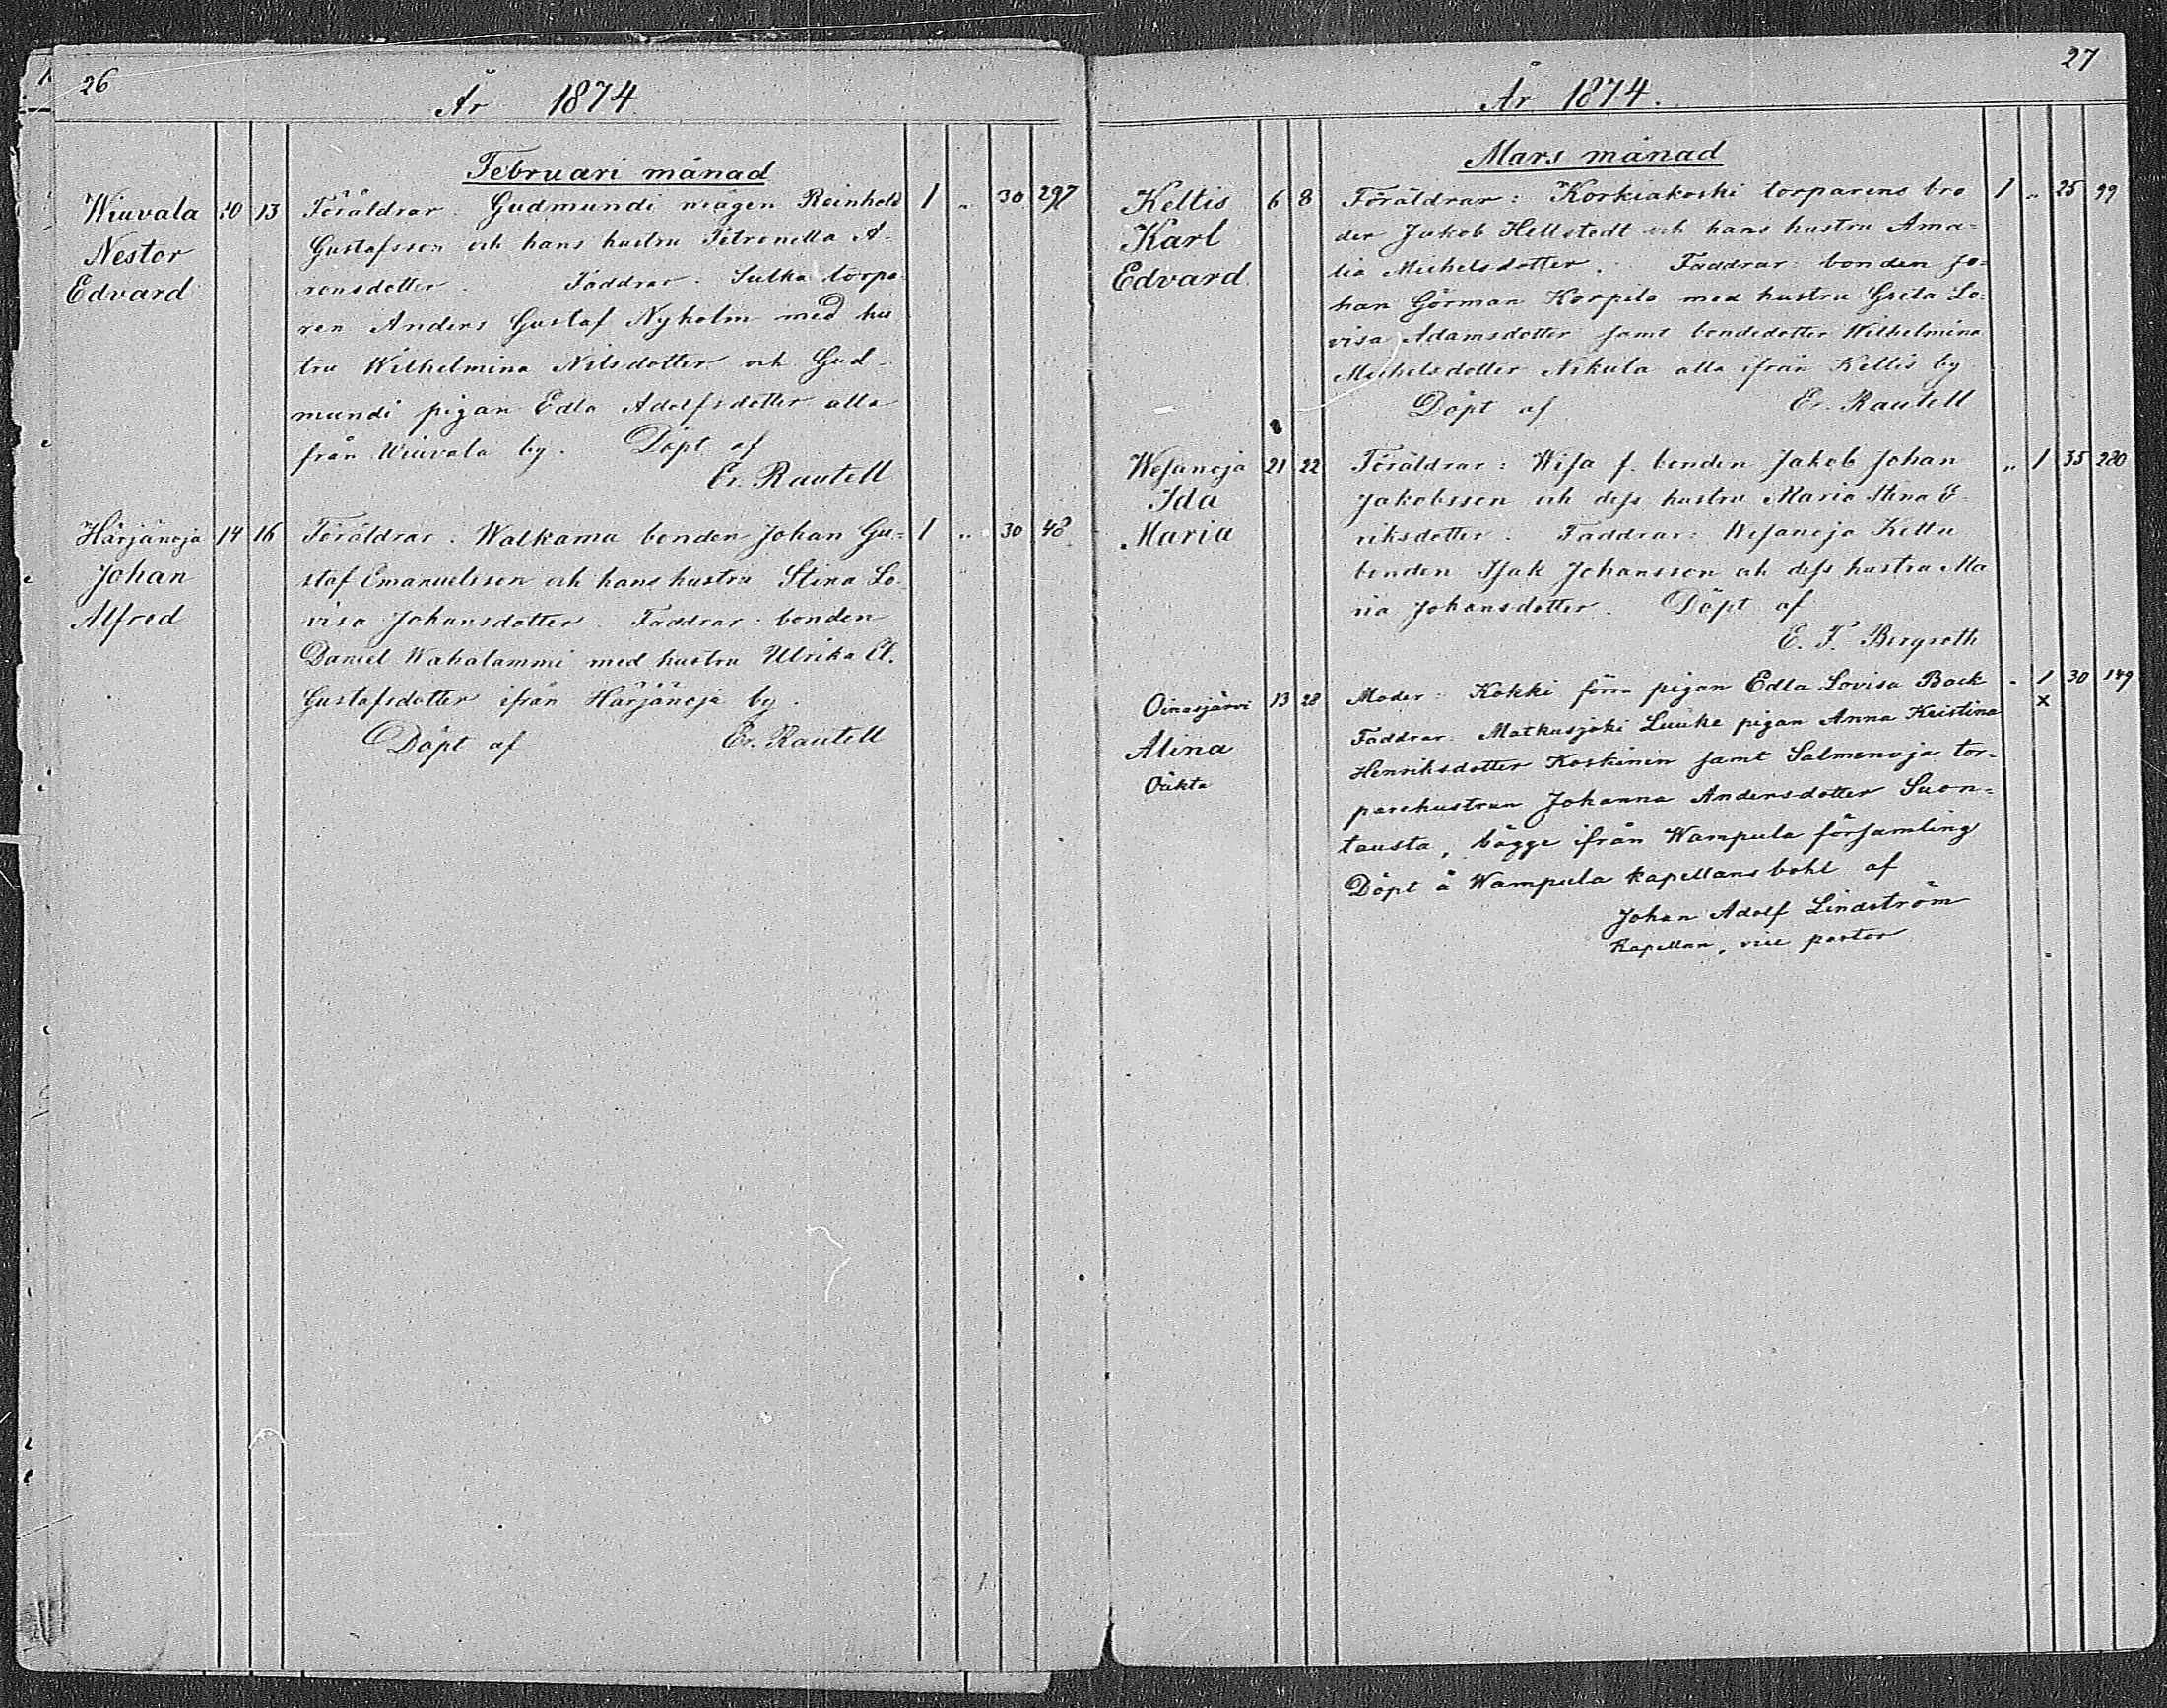 26
År 1874
Februari månad
Wiuvala 10 13 Föräldrar. Gudmundi mågen Reinhold 1 „ 30 297
Nestor Gustafsson och hans hustru Petronella A-
Edvard ronsdotter. Faddrar. Sulka torpa-
ren Anders Gustaf Nyholm med hu
tru Wilhelmina Nilsdotter och Gud-
mundi pigan Edla Adolfsdotter alla
från Wiuvala by. Döpt af
Er. Rautell
Härjänoja 14 16 Föräldrar. Walkama bonden Johan Gu= 1 „ 30 48
Johan staf Emanuelsson och hans hustru Stina Lo-
Alfred visa Johansdotter. Faddrar: bonden
Daniel Wahalammi med hustru Ulrika El.
Gustafsdotter ifrån Härjänoja by.
Döpt af Er. Rautell
27
År 1874.
Mars månad
Keltis 6 8 Föräldrar: Korkiakoski torparens bro 1 „ 25 99
Karl der Jakob Hellstedt och hans hustru Ama=
Edvard. lia Michelsdotter. Faddrar: bonden Jo=
han Görman Korpilo med hustru Greta Lo=
visa Adamsdotter samt bondedotter Wilhelmina
Michelsdotter Nikula alla ifrån Keltis by
Döpt af Er. Rautell
Wesanoja 21 22 Föräldrar: Wisa f. bonden Jakob Johan „ 1 35 280
Ida Jakobsson och dess hustru Maria Stina E-
Maria riksdotter. Faddrar: Wesanoja Kettu
bonden Isak Johansson och dess hustru Ma
ria Johansdotter. Döpt af
E. F. Bergroth
Oinasjärvi 13 28 Moder: Kokki förra pigan Edla Lovisa Back „ 1 30 149
x
Alina Faddrar: Matkusjoki Luuke pigan Anna Kristina
Oäkta Henriksdotter Koskinen samt Salmenoja tor-
parehustrun Johanna Andersdotter Suon=
tausta, bägge ifrån Wampula församling
Döpt å Wampula kapellansbohl af
Johan Adolf Lindström
Kapellan, vice pastor